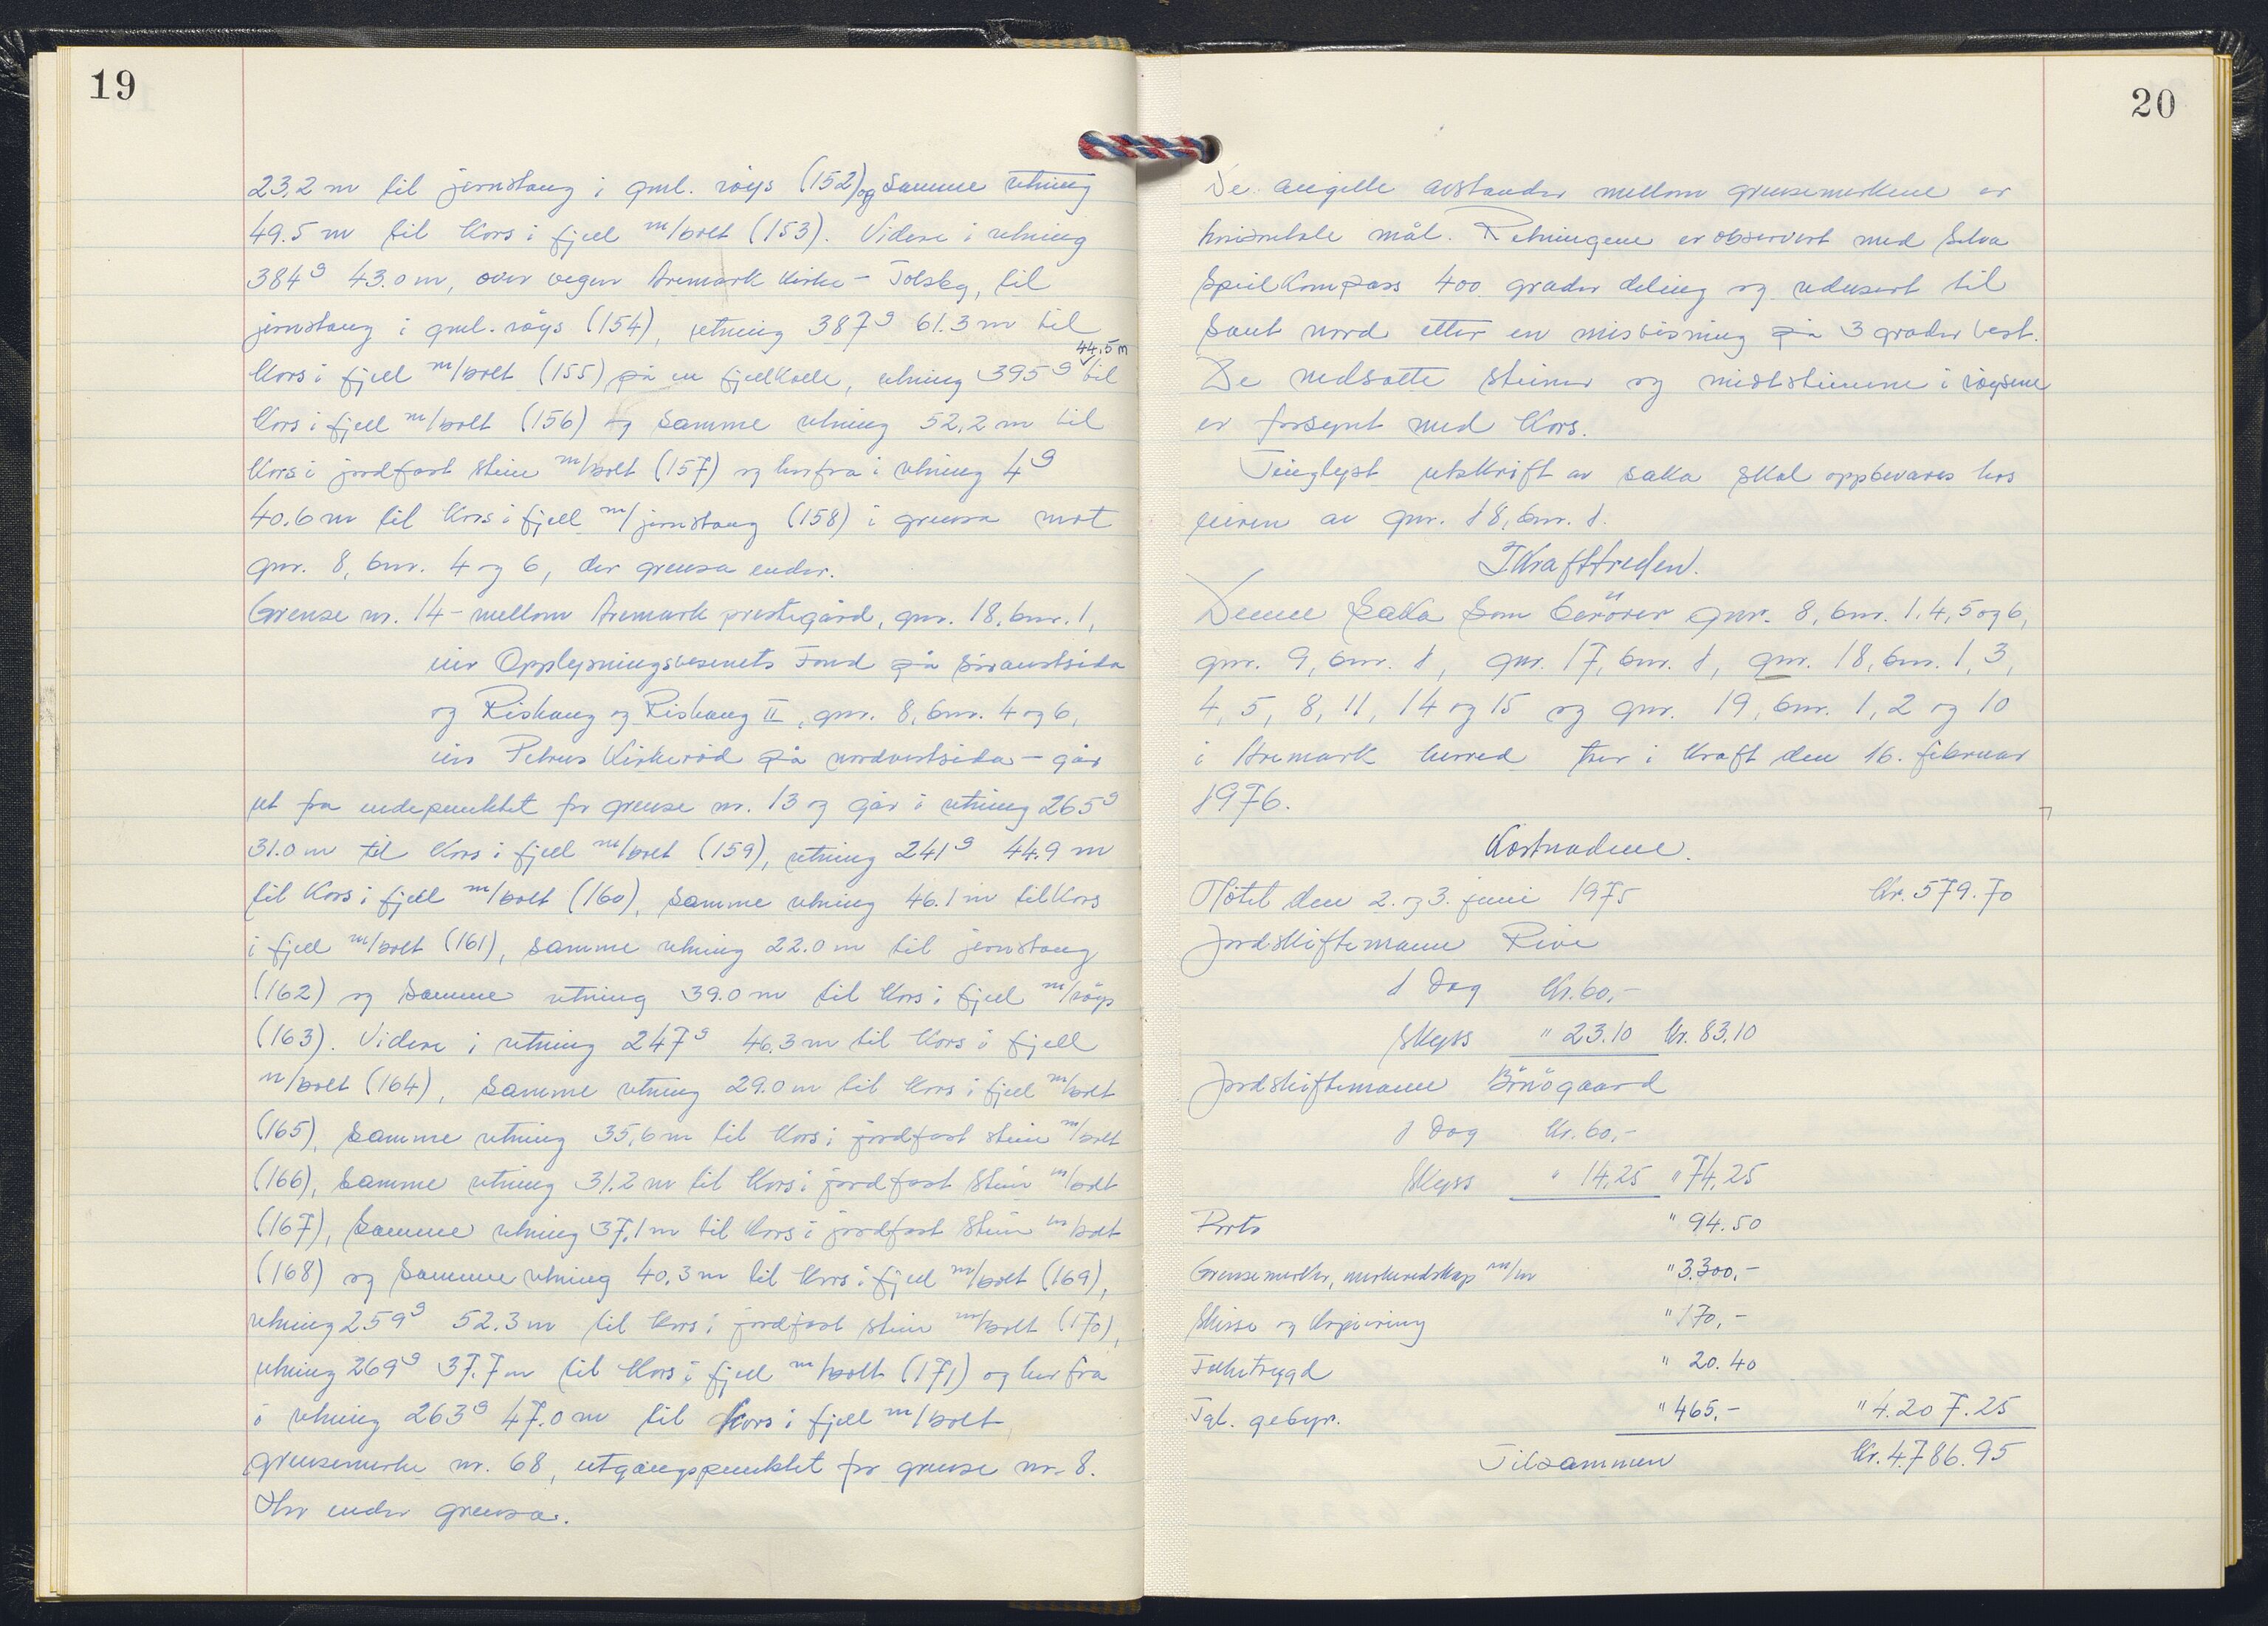 19
23,2 m til jernstang i gml. röys (152) og samme retning
49.5 m til kors i fjell m/bolt (153). Videre i retning
384g 43.0 m, over vegen Aremark kirke - Tolsby, til
jernstang i gml. röys (154), retning 387g 61.3 m til
44,5 m
kors i fjell m/bolt (155) på en fjellkolle, retning 395g til
kors i fjell m/bolt (156) og samme retning 52,2 m til
kors i jordfast stein m/bolt (157) og herfra i retning 4g
40.6 m til kors i fjell m/jernstang (158) i grensa mot
gnr. 8, bnr. 4 og 6, der grensa ender.
Grense nr. 14 - mellom Aremark prestegård, gnr. 18, bnr. 1,
eier Opplysningsvesenets Fond på söraustsida
og Rishaug og Rishaug II, gnr. 8, bnr. 4 og 6,
eier Petrus Kirkeröd på nordvestsida - går
ut fra endepunktet for grense nr. 13 og går i retning 265g
31.0 m til kors i fjell m/bolt (159), retning 241g 44.9 m
til kors i fjell m/bolt (160), samme retning 46.1 m til kors
i fjell m/bolt (161), samme retning 22.0 m til jernstang
(162) og samme retning 39.0 m til kors i fjell m/röys
(163). Videre i retning 247g 46.3 m til kors i fjell
m/bolt (164), samme retning 29.0 m til kors i fjell m/bolt
(165), samme retning 35,6 m til kors i jordfast stein m/bolt
(166), samme retning 31.2 m til kors i jordfast stein m/bolt
(167), samme retning 37,1 m til kors i jordfast stein m/bolt
(168) og samme retning 40,3 m til kors i fjell m/bolt (169),
retning 259g 52.3 m til kors i jordfast stein m/bolt (170),
retning 269g 37.7 m til kors i fjell m/bolt (171) og herfra
i retning 263g 47.0 m til kors i fjell m/bolt
grensemerke nr. 68, utgangspunktet for grense nr. 8.
Her ender grensa.
20
De angitte avstander mellom grensemerkene er
horisontale mål. Retningene er observert med Silva
speilkompass 400 grader deling og redusert til
sant nord etter en misvisning på 3 grader vest.
De nedsatte steiner og midtsteinene i röysene
er forsynt med kors.
Tinglyst utskrift av saka skal oppbevares hos
eieren av gnr. 18, bnr. 1.
Ikrafttreden.
Denne saka som berörer gnr. 8, bnr. 1, 4, 5 og 6,
gnr. 9, bnr. 1, gnr. 17, bnr. 1, gnr. 18, bnr. 1, 3,
4, 5, 8, 11, 14 og 15 og gnr. 19, bnr. 1, 2 og 10
i Aremark herred trer i kraft den 16. februar
1976.
Kostnadene.
Möter den 2. og 3. juni 1975 kr. 579.70
Jordskiftemann Rive
1 dag kr. 60,-
Skyss " 23.10 kr. 83,10
Jordskiftemann Börögaard
1 dag kr. 60,-
Skyss " 14,25 " 74,25
Porto " 94.50
Grensemerker, merkeredskap m/m " 3.300,-
Skisse og kopiering " 170,-
Folketrygd " 20.40
Tgl. gebyr. " 465,- " 4.207.25
Tilsammen kr. 4.786.95